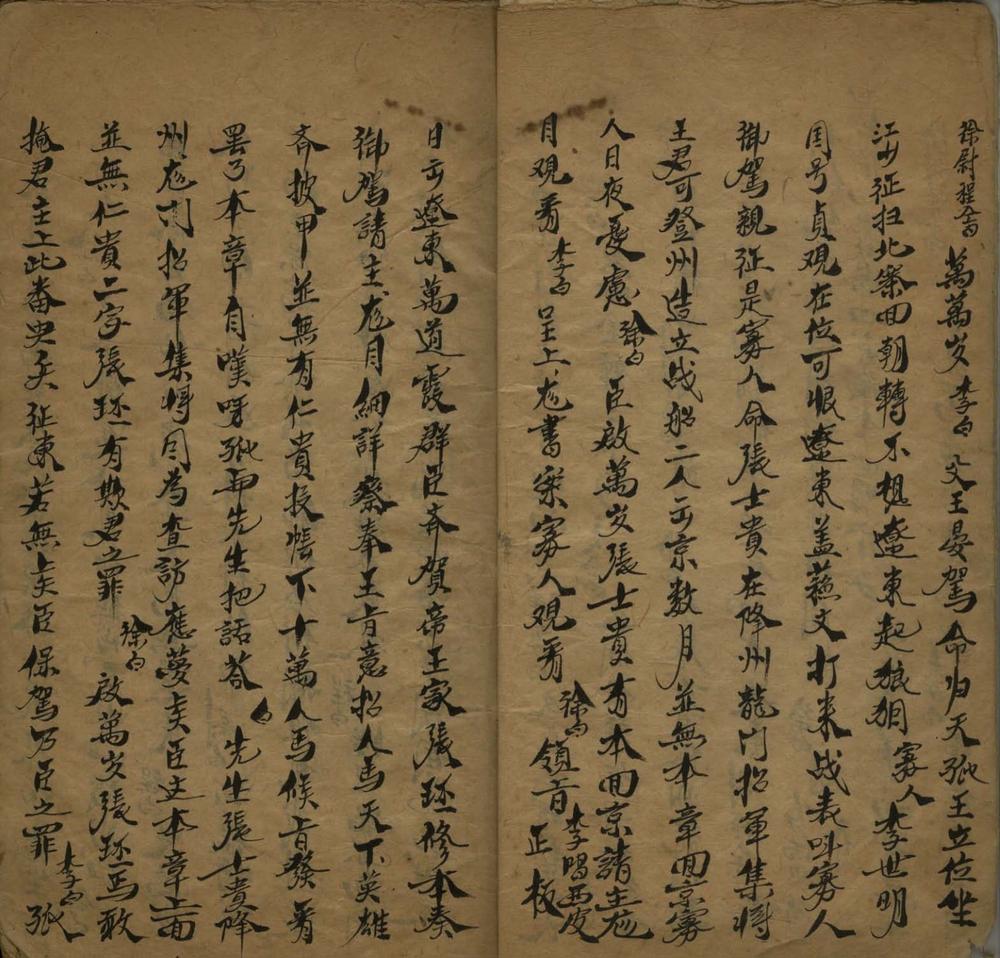 徐尉程仝白 萬萬岁 李白 父王晏駕命归天孤王立位坐
江山征扫北柴回朝轉不想遼東起狼烟 寡人 李世明
国号貞观在位可恨遼東盖蘓文打来战表叫寡人
御駕親征是寡人命張士貴在降州龍门招軍集将
王君可登州造立战船二人出京数月並無本章回京寡
人日夜憂慮 徐白 臣啟萬岁張士貴有本回京請主龙
目观看 李白 呈上龙書案寡人观看 徐白 領旨 李唱西皮 正板
日出遼東萬道霞群臣斉賀帝王家張环修本奏
御駕請主龙目細詳察奉王旨意招人馬天下英雄
斉披甲並無有仁貴投帳下十萬人馬候旨發看
罢了本章自嘆呀孤再先生把話答 白 先生張士貴降
州龙门招軍集将因為查訪應夢夫臣这本章上面
並無仁貴二字張环有欺君之罪 徐白 啟萬岁張环焉敢
掩君主上此番央夫征東若無夫臣保駕乃臣之罪 李白 孤